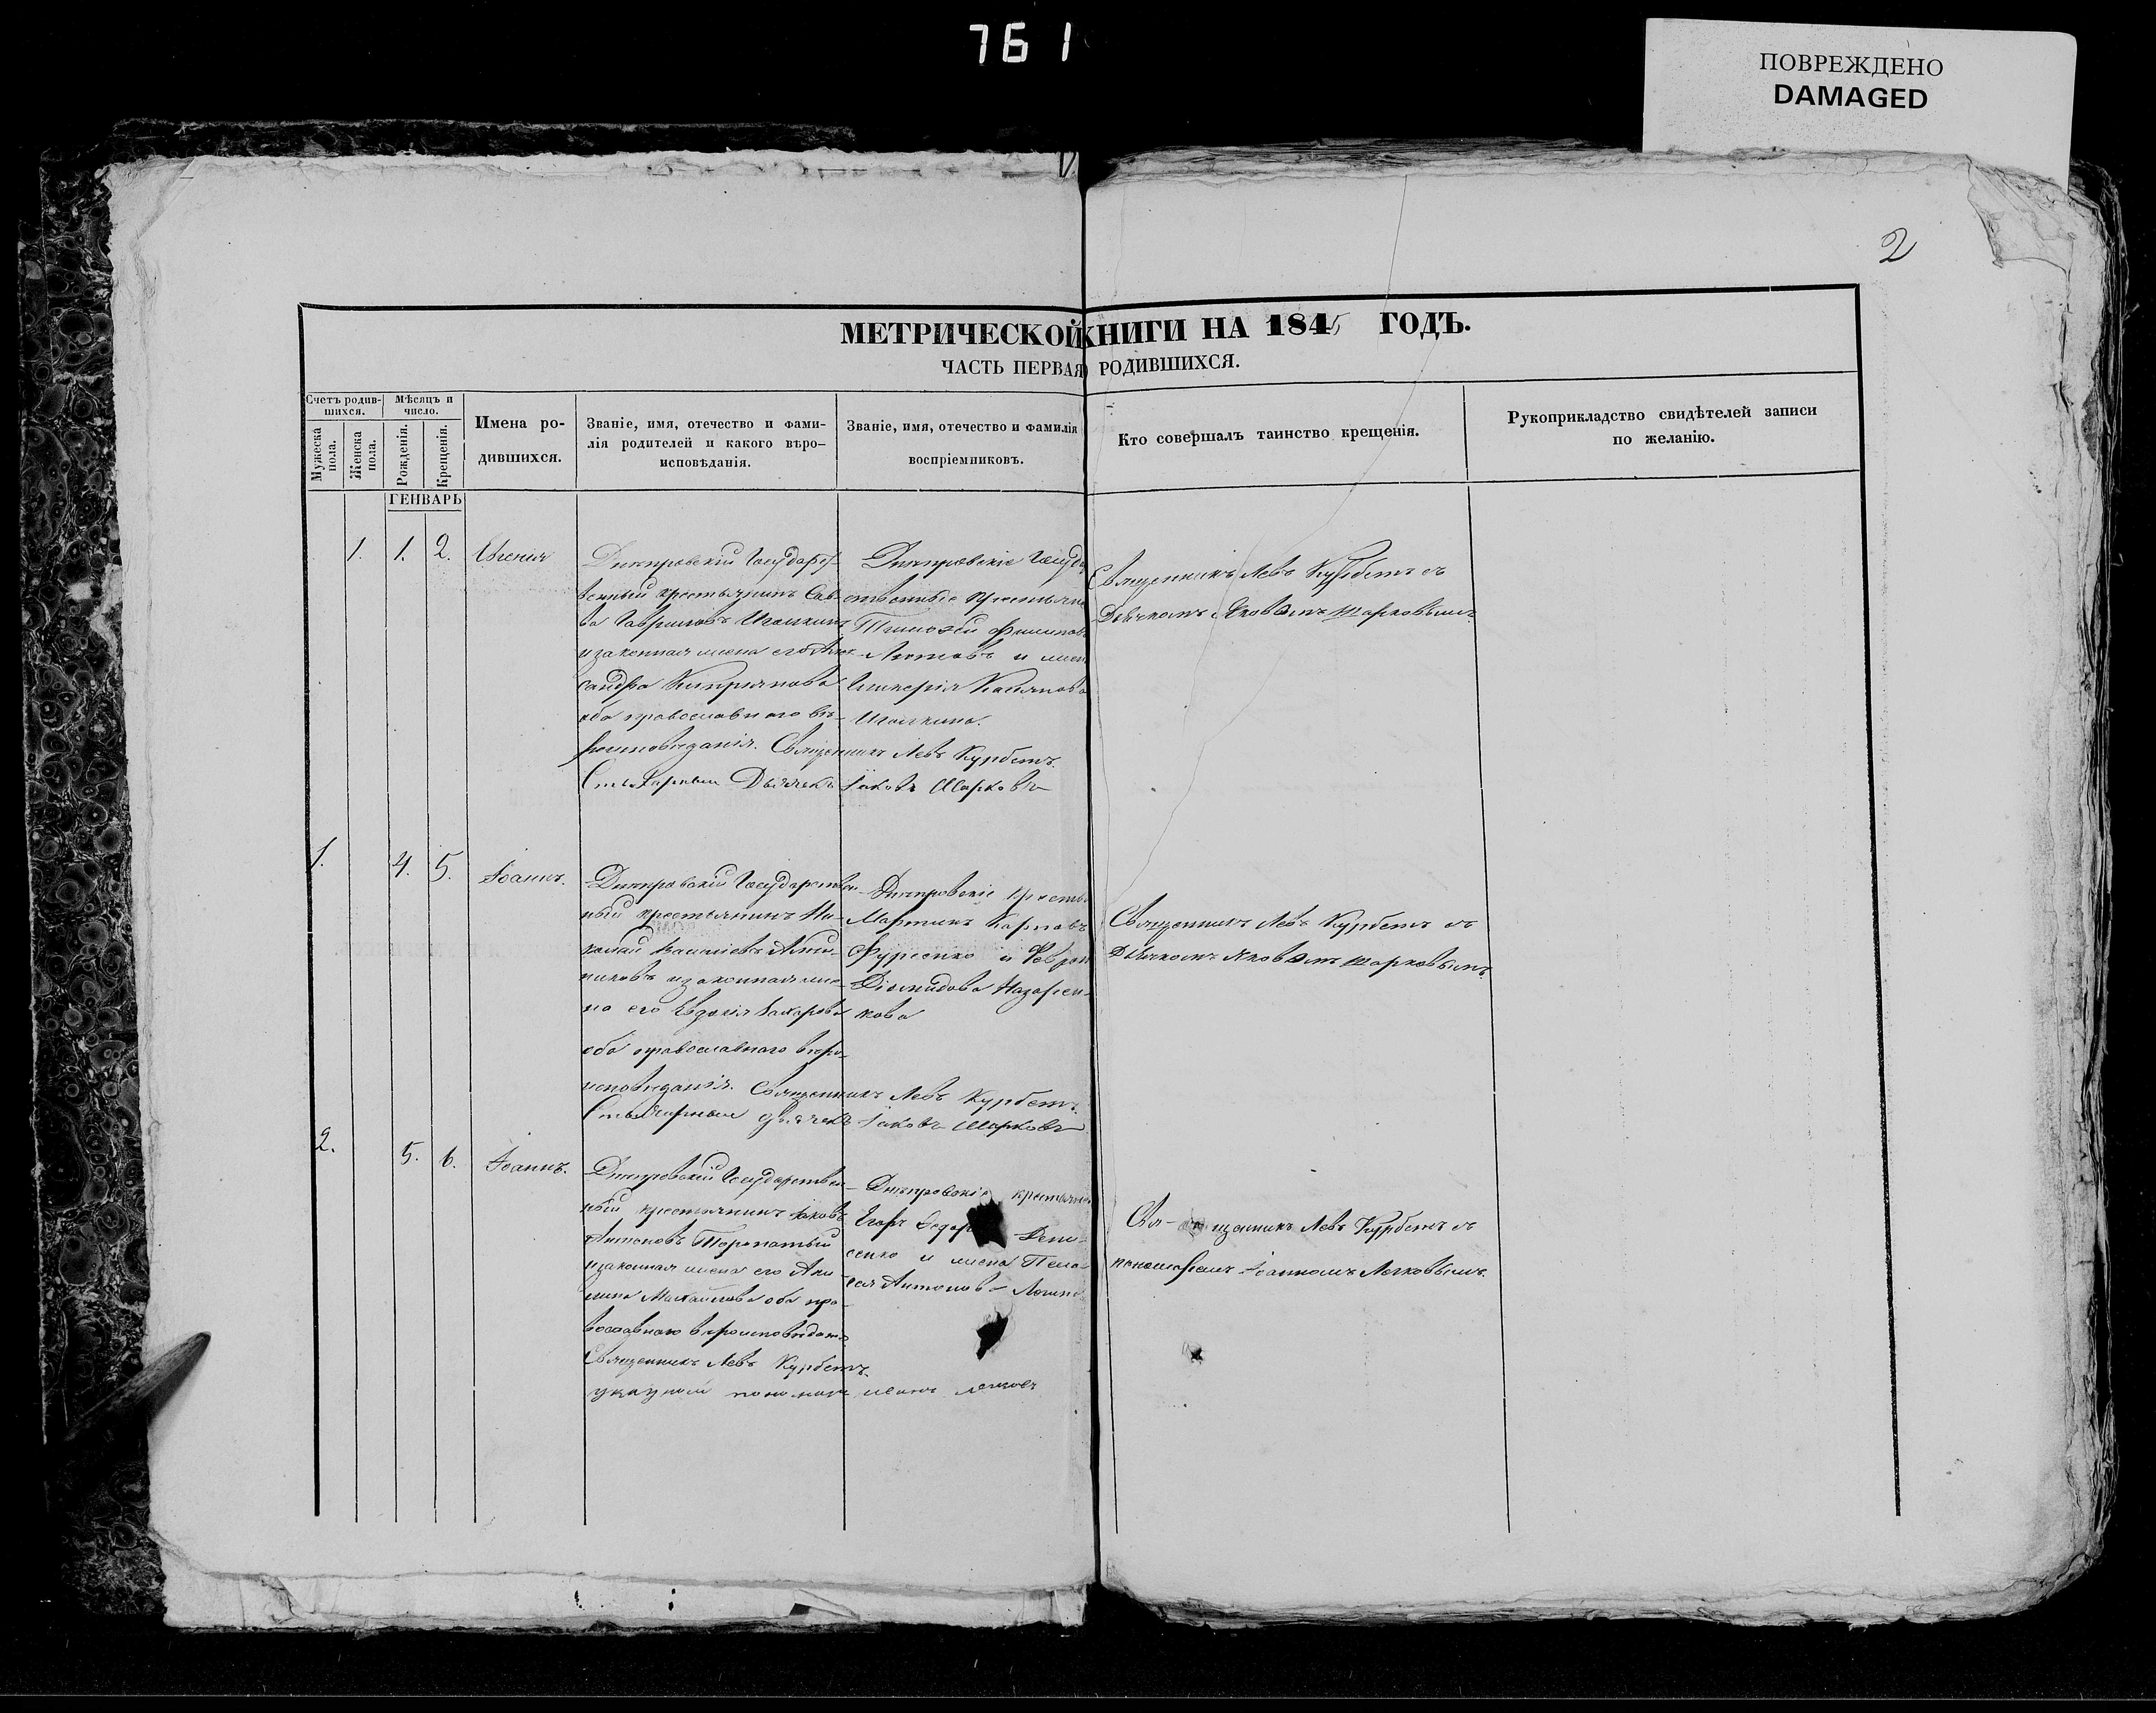 761
ПОВРЕЖДЕНО
DAMAGED
2
МЕТРИЧЕСКОЙ КНИГИ НА 1845 ГОДЪ.
ЧАСТЬ ПЕРВАЯ РОДИВШИХСЯ.
Счетъ родив-
шихся.
Мужеска
пола.
Женска
пола.
Мѣсяцъ и
число.
Рожденія.
Крещенія.
Имена ро-
дившихся.
Званіе, имя, отечество и фами-
лія родителей и какого вѣро-
исповѣданія.
Званіе, имя, отечество и фамилія
воспріемниковъ.
Кто совершалъ таинство крещенія.
Рукоприкладство свидѣтелей записи
по желанію.
ГЕНВАРЬ
1. 1. 2. Евгенія
Днѣпровскій Государст-
венный крестьянинъ Сав-
ва Гавриловъ
и законная жена его Алек-
сандра Кипріянова
оба православнаго вѣ-
роисповѣданія. Священникъ Левъ Курбетъ.
Стихарный Дьячекъ Іаковъ Шарковъ
Днѣпровскіе Госуд
ственные крестьяне
Тимофей Филиповъ
и жен
Гликерія
Священникъ Левъ Курбетъ съ
Дьячкомъ Яковомъ Шарковымъ.
1. 4. 5. Іоаннъ.
Днѣпровскій Государствен-
ный крестьянинъ Ни-
колай
и законная же-
на его Евдокія Захарова
оба православнаго вѣро-
исповѣданія. Священникъ Левъ Курбетъ.
Стихарный дьячекъ Іаковъ Шарковъ
Днѣпровскіе крестья
Мартинъ Карповъ
и Феврон
Діомидова Назарен-
кова
Священникъ Левъ Курбетъ съ
Дьячкомъ Яковомъ Шарковымъ.
2. 5. 6. Іоаннъ.
Днѣпровскій Государствен-
ный крестьянинъ Іаковъ
Антоновъ
и законная жена его Аку-
лина Михайлова оба пра-
вославнаго вѣроисповѣдан.
Священникъ Левъ Курбетъ.
указной пономарь
Днѣпровскіе крестьяне
Егоръ Федор Дени-
сенко и жена Пела-
гея Антонова
Свя-щенникъ Левъ Курбетъ съ
пономаремъ Іоанномъ